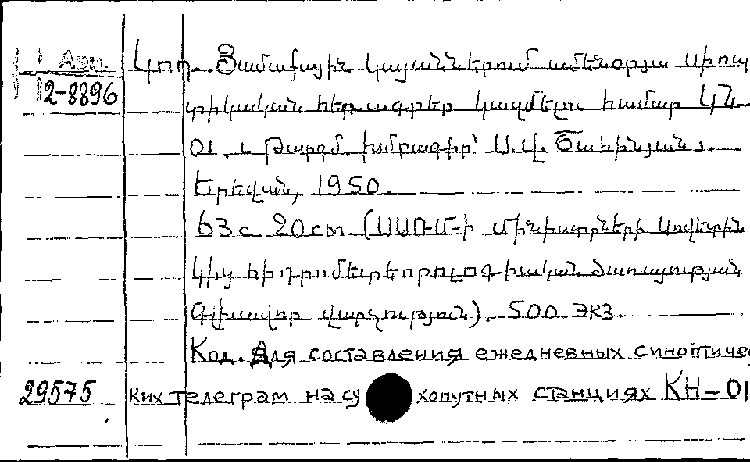 Арм. Կոդ. Ցամաքային կայաններում ամենօրյա սինոպ
2-8896 տիկական հեռագրեր կազմելու համար ԿՆ
01. Թարգմ. խմբագիր՝ Ս.Վ.
Երևան, 1950.
63 с. 20 см (ՍՍՌՄ-ի Մինիստրների Սովետին
կից հիդրոմետեորոլոգիական ծառայության
Գլխավոր վարչություն). 500 экз.
Код. Для составления ежедневных синоптичес
29575 ких телеграм на сухопутных станциях КН-01